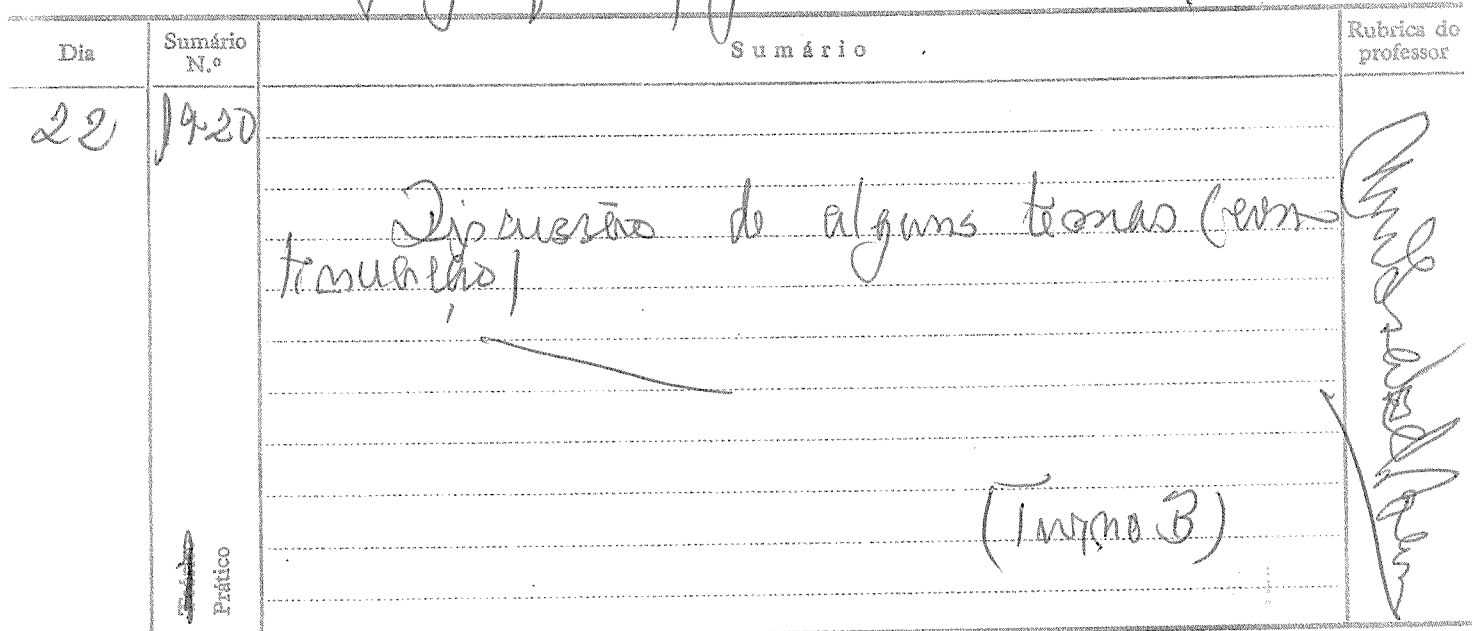 Dia
Sumário
N.º
Sumário
Rubrica do
professor
22
19-20
Discussão de alguns temas (con-
tinuação)
(Turma B)
Prático